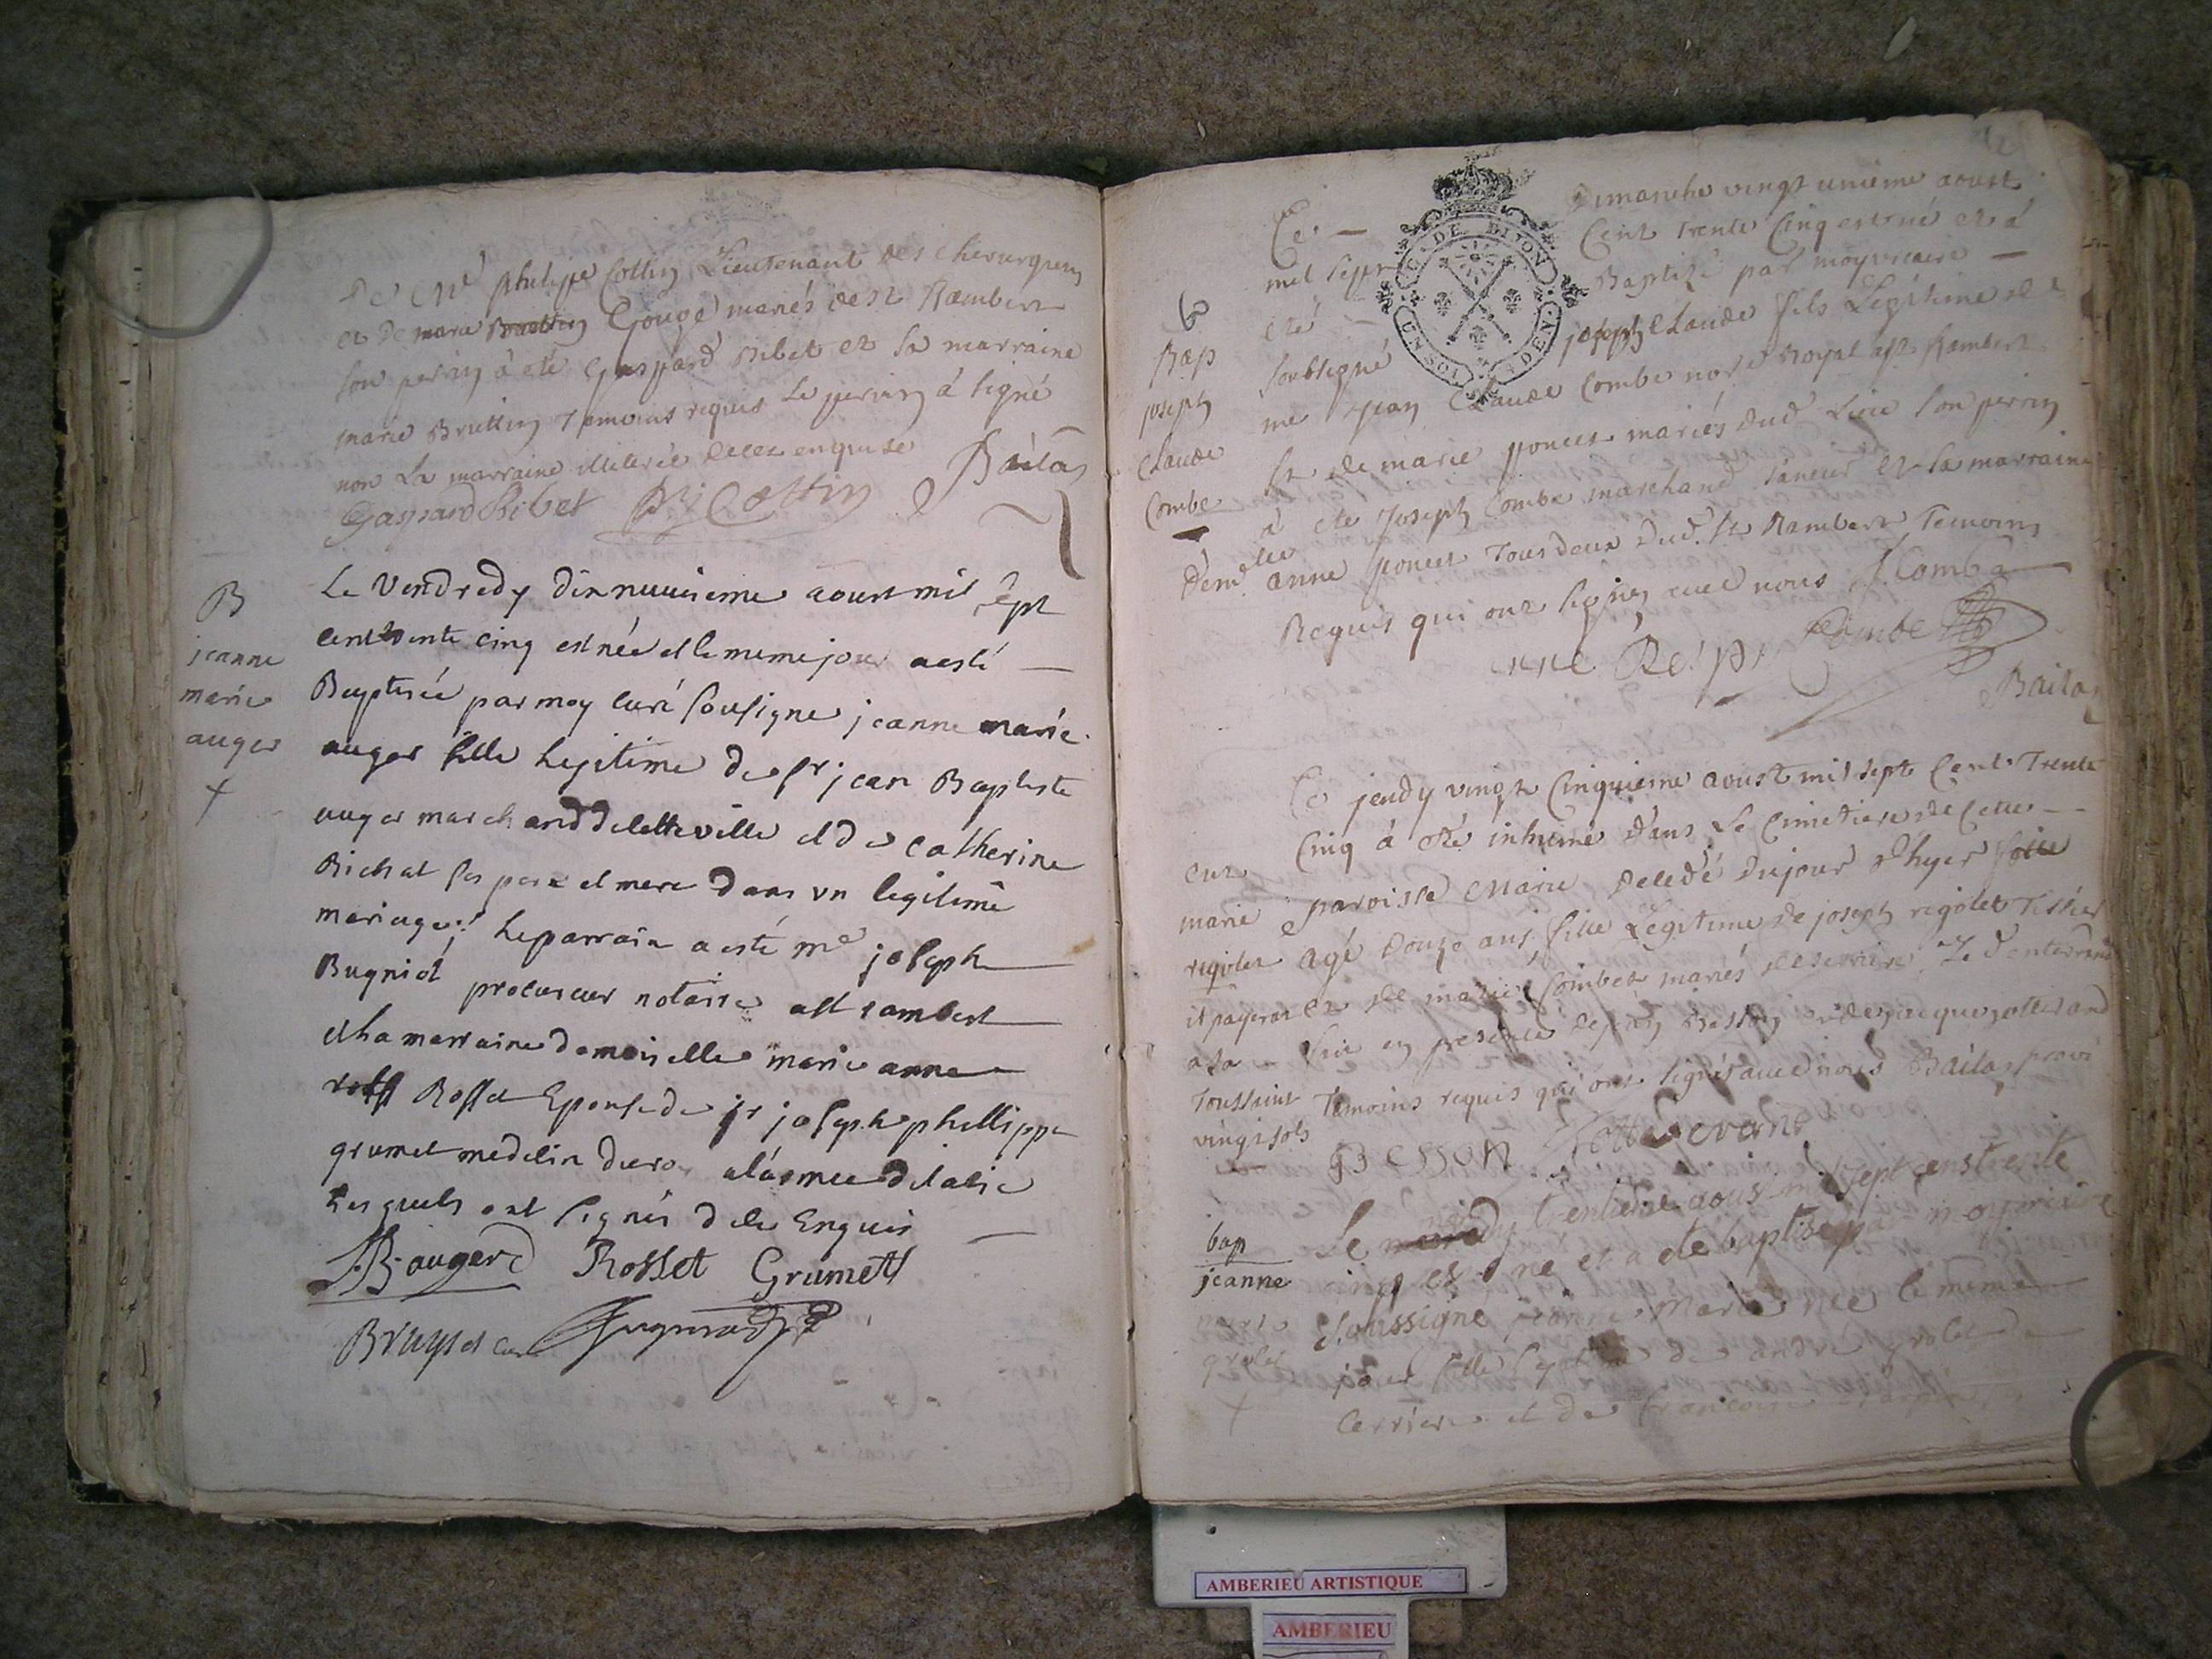 De Me philippe Cottin Lieutenant des chirurgiens
et de marie Gouge mariés de st Rambert
son perrin à eté Gaspard Ribet et la marraine
marie Bruttin temoins requis le perrin à signé
non la marraine illiterée de ce enquise
Gaspard Ribet Cottin Bailas
B
jeanne
marie
auger
Le Vendredy dixneuvieme aoust mil sept
cent trente cinq est née et le meme jour a esté
Baptisée par moy curé sousigne jeanne marie
auger fille legitime de sr jean Baptiste
auger marchand de cette ville et de catherine
Bichat ses pere et mere dans un legitime
mariage; le parrain a esté me joseph
Bugniot procureur notaire a st rambert
et la marraine demoiselle marie anne
Rosset Epouse de sr joseph phillippe
grumet medecin
lesquels ont signés de ce Enquis
JB. auger Rosset Grumet
Bruyset curé
DE DIJON
Ce Dimanche vingt unieme aoust
mil sept Cent trente Cinq est né et à
eté Baptizé par moy vicaire
soubsigné joseph Claude fils Legitime de
me jean Claude Combe nore Royal a st Rambert
et de marie poncet mariés dud lieu son perrin
à eté Joseph Combe marchand taneur et la marraine
Demlle anne poncet tous deux dud. st Rambert temoins
Requis qui ont signez avec nous J. Combe
Combe
Bailas
Bap
joseph
Claude
Combe
Ce jeudy vingt Cinquieme aoust mil sept Cent Trente
Cinq à eté inhumé dans Le Cimetiere de Cette
paroisse Marie decedé du jour d'hyer
agé douze ans fille Legitime de joseph rigolet Tissier
et de marie Combet mariés de serriere Led enterrement
fait en presence de jean Besson et de jacque
Temoins requis qui ont signés avec nous Bailas
BESSON
enr
marie
rigolet
il payerat
a la
Toussaint
vingt sols
Le mardy trentieme aoust mil sept cens trente
cinq est ne et a ete baptise par moy vicaire
soussigne jeanne Marie nee le meme
jour fille legitime de andre grolet de
Cerriere et de francoise
bap
jeanne
marie
grolet
AMBERIEU ARTISTIQUE
AMBERIEU